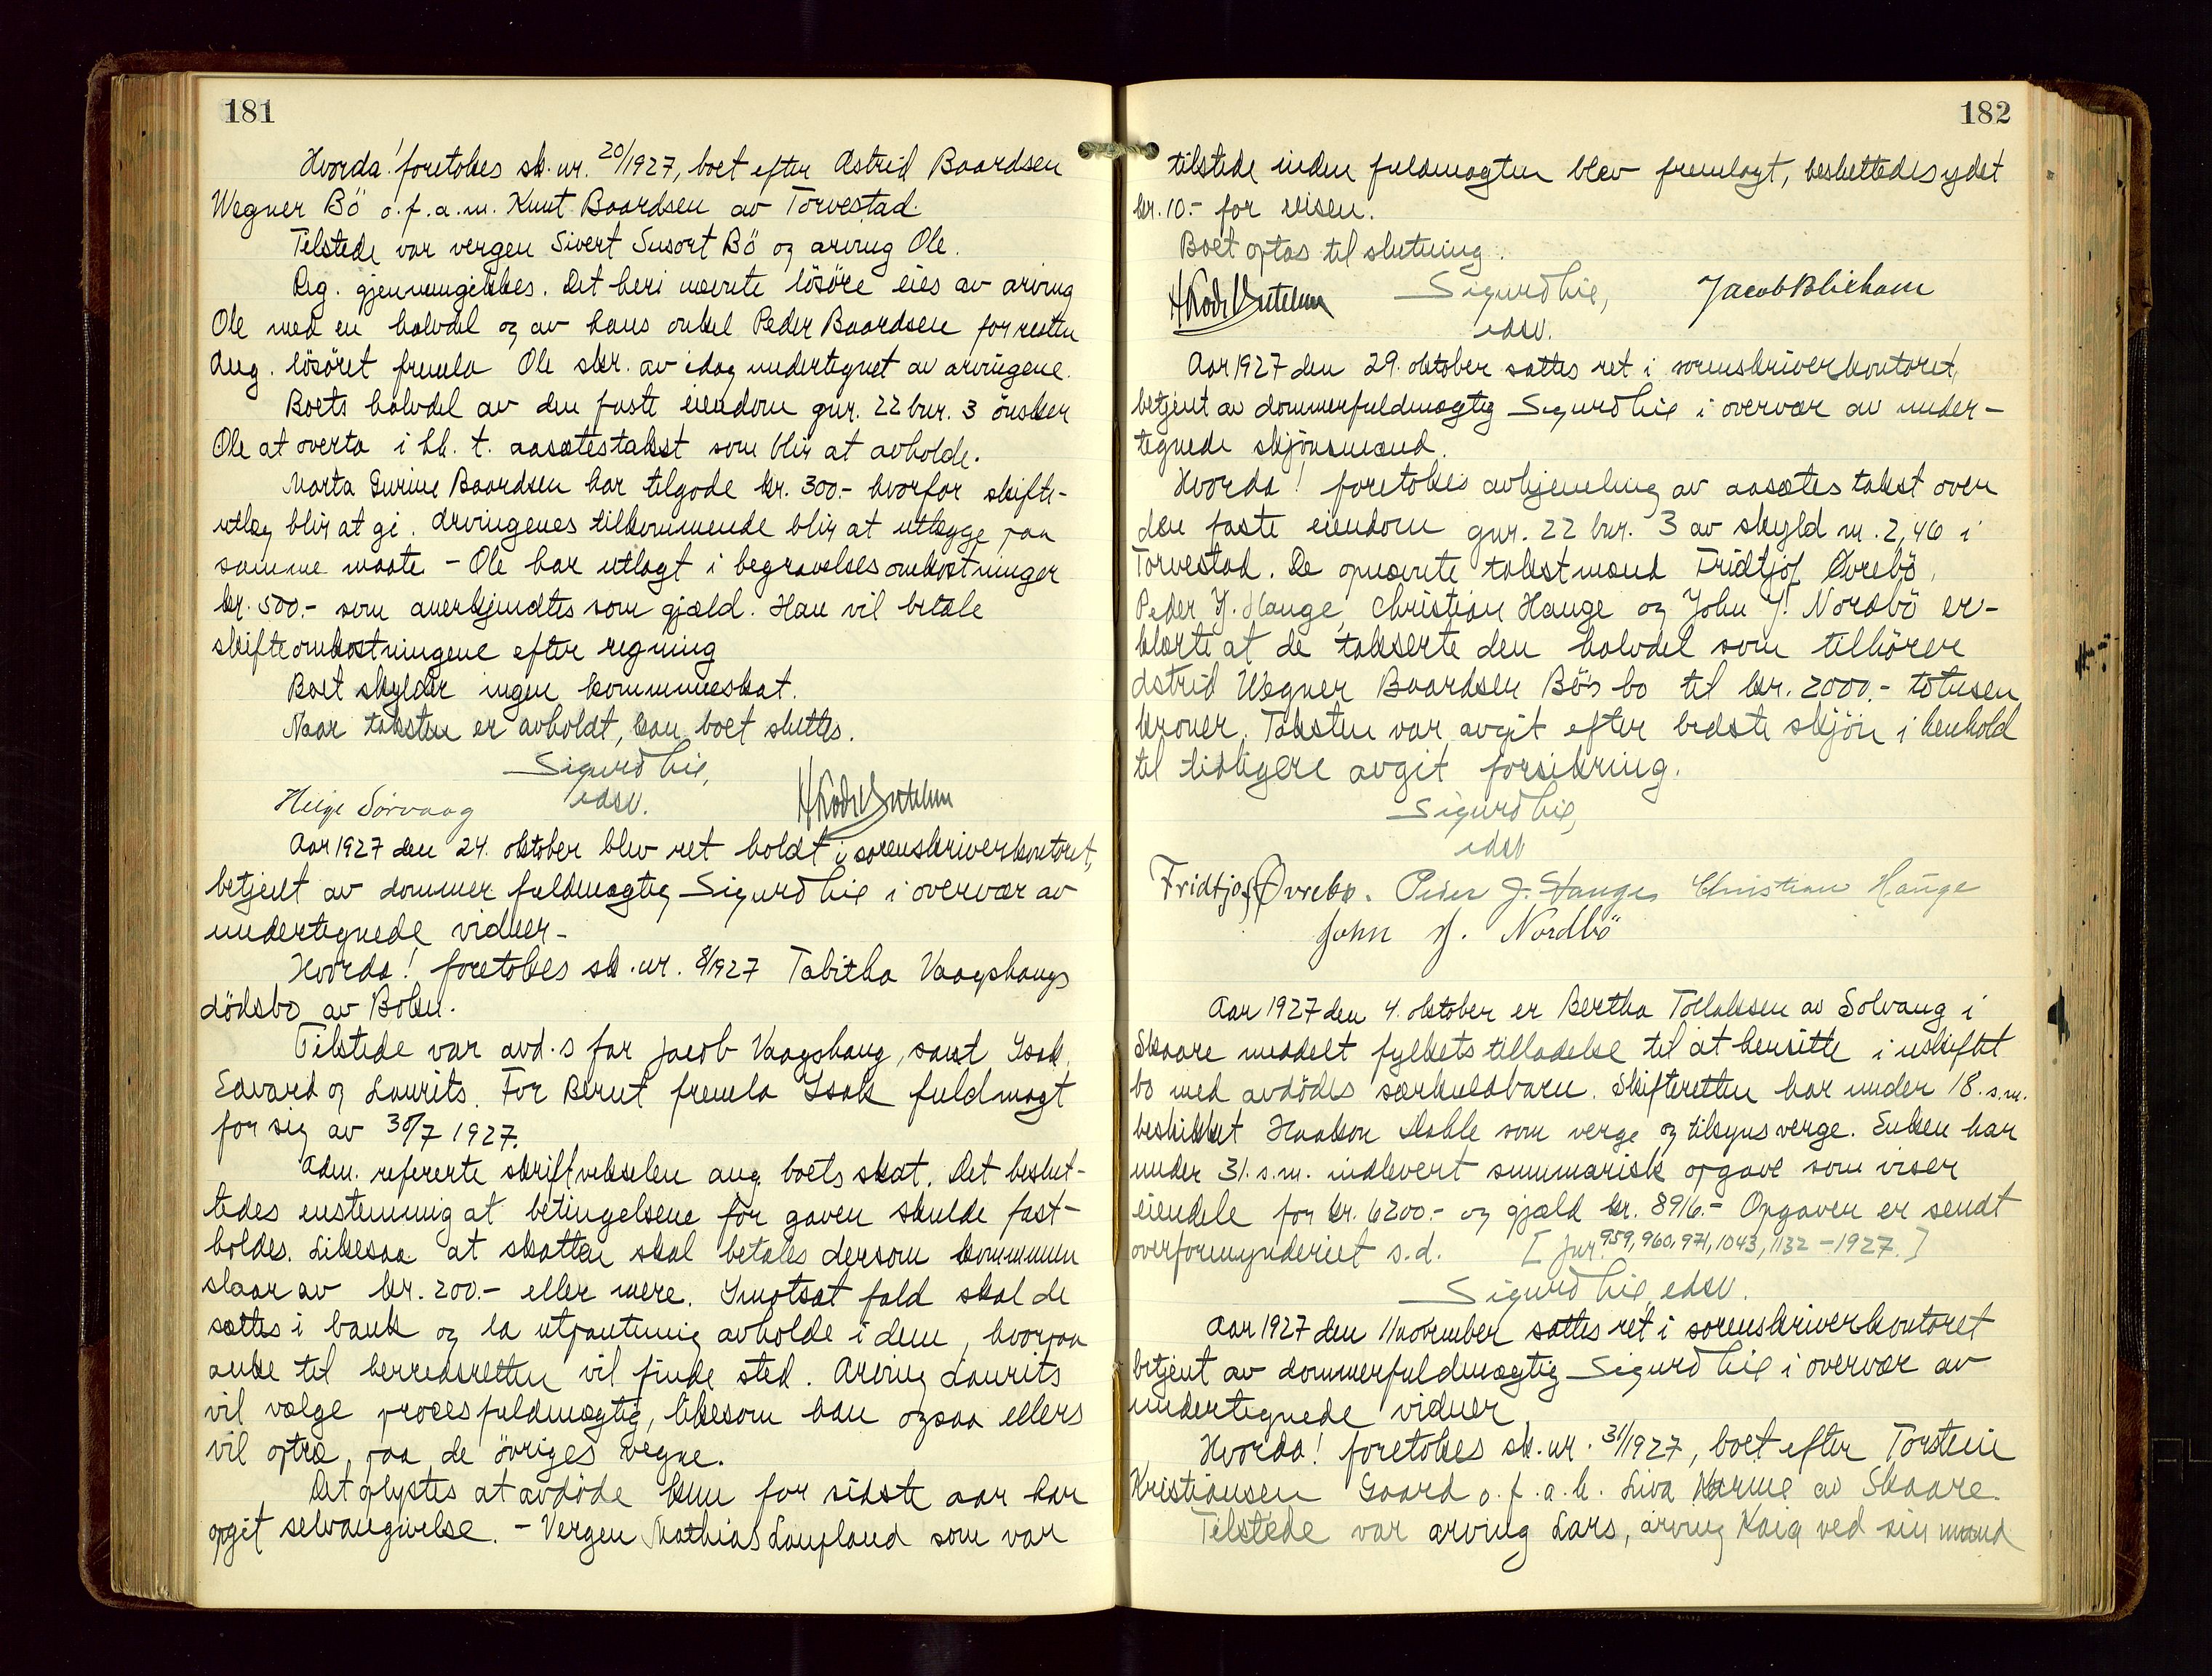 181
Hvorda! foretokes sk. nr. 20/1927, boet efter Astrid Baardsen
Wegner Bö o. f. a. m. Knut Baardsen av Torvestad.
Tilstede var vergen Sivert Susort Bö og arving Ole.
Reg. gjennemgikkes. Det heri nævnte lösöre eies av arving
Ole med en halvdel og av hans onkel Peder Baardsen for resten
Ang. lösöret fremla Ole skr. av idag undertegnet av arvingene.
Boets halvdel av den faste eiendom gnr. 22 bnr. 3 önsker
Ole at overta i hh. t. aasætestakst som blir at avholde.
Marta Gurine Baardsen har tilgode kr. 300.- hvorfor skifte-
utlæg blir at gi. Arvingenes tilkommende blir at utlægge paa
samme maate - Ole har utlagt i begravelsesomkostninger
kr. 500.- som anerkjendtes som gjæld. Han vil betale
skifteomkostningene efter regning
Boet skylder ingen kommuneskat.
Naar taksten er avholdt, kan boet sluttes.
Sigurd Lie,
Helge Sörvaag edsv.
Aar 1927 den 24. oktober blev ret holdt i sorenskriverkontoret,
betjent av dommerfuldmægtig Sigurd Lie i overvær av
undertegnede vidner-
Hvorda! foretokes sk. nr. 8/1927 Tabitha Vaagshaugs
dödsbo av Boken.
Tilstede var avd.s far Jacob Vaagshaug, samt Isak,
Edvard og Laurits. For Bernt fremla Isak fuldmagt
for sig av 30/7 1927.
Adm. refererte skriftvekselen ang. boets skat. Det beslut-
tedes enstemmig at betingelsene for gaven skulde fast-
holdes. Likesaa at skatten skal betales dersom kommunen
slaar av kr. 200.- eller mere. I motsat fald skal de
sættes i bank og la utpantning avholde i dem, hvorpaa
anke til herredsretten vil finde sted. Arving Laurits
vil vælge procesfuldmægtig, likesom han ogsaa ellers
vil optræ paa de övriges vegne.
Det oplystes at avdöde kun for sidste aar har
opgit selvangivelse. - Vergen Mathias Laupland som var
182
tilstede inden fuldmagten blev fremlagt, besluttedes ydet
kr. 10.- for reisen.
Boet optas til slutning.
Sigurd Lie,
edsv.
Aar 1927 den 29. oktober sattes ret i sorenskriverkontoret,
betjent av dommerfuldmægtig Sigurd Lie i overvær av under-
tegnede skjönsmænd.
Hvorda! foretokes avhjemling av aasætestakst over
den faste eiendom gnr. 22 bnr. 3 av skyld m. 2,46 i
Torvestad. De opnævnte takstmænd Fridtjof Øvrebö,
Peder J. Hauge, Christian Hauge og John J. Nordbö er-
klærte at de takserte den halvdel som tilhörer
Astrid Wegner Baardsen Bö's bo til kr. 2000.- totusen
kroner. Taksten var avgit efter bedste skjön i henhold
til tidligere avgit forsikring.
Sigurd Lie,
edsv
Fridtjof Øvrebø. Peder J. Hauge, Christian Hauge
John J. Nordbö
Aar 1927 den 4. oktober er Bertha Tollaksen av Solvang i
Skaare meddelt fylkets tilladelse til at hensitte i uskiftet
bo med avdödes særkuldbarn. Skifteretten har under 18. s.m.
beskikket Haakon Mæhle som verge og tilsynsverge. Enken har
under 31. s.m. indlevert summarisk opgave som viser
eiendele for kr. 6200.- og gjæld kr. 8916.- Opgaven er sendt
overformynderiet s.d. [jnr. 959, 960, 971, 1043, 1132 - 1927.]
Sigurd Lie, edsv.
Aar 1927 den 11 november sattes ret i sorenskriverkontoret
betjent av dommerfuldmægtig Sigurd Lie i overvær av
undertegnede vidner.
Hvorda! foretokes sk. nr. 31/1927, boet efter Torstein
Kristiansen Gaard o. f. a. h. Liva Karine av Skaare.
Tilstede var arving Lars, arving Kaia ved sin mand